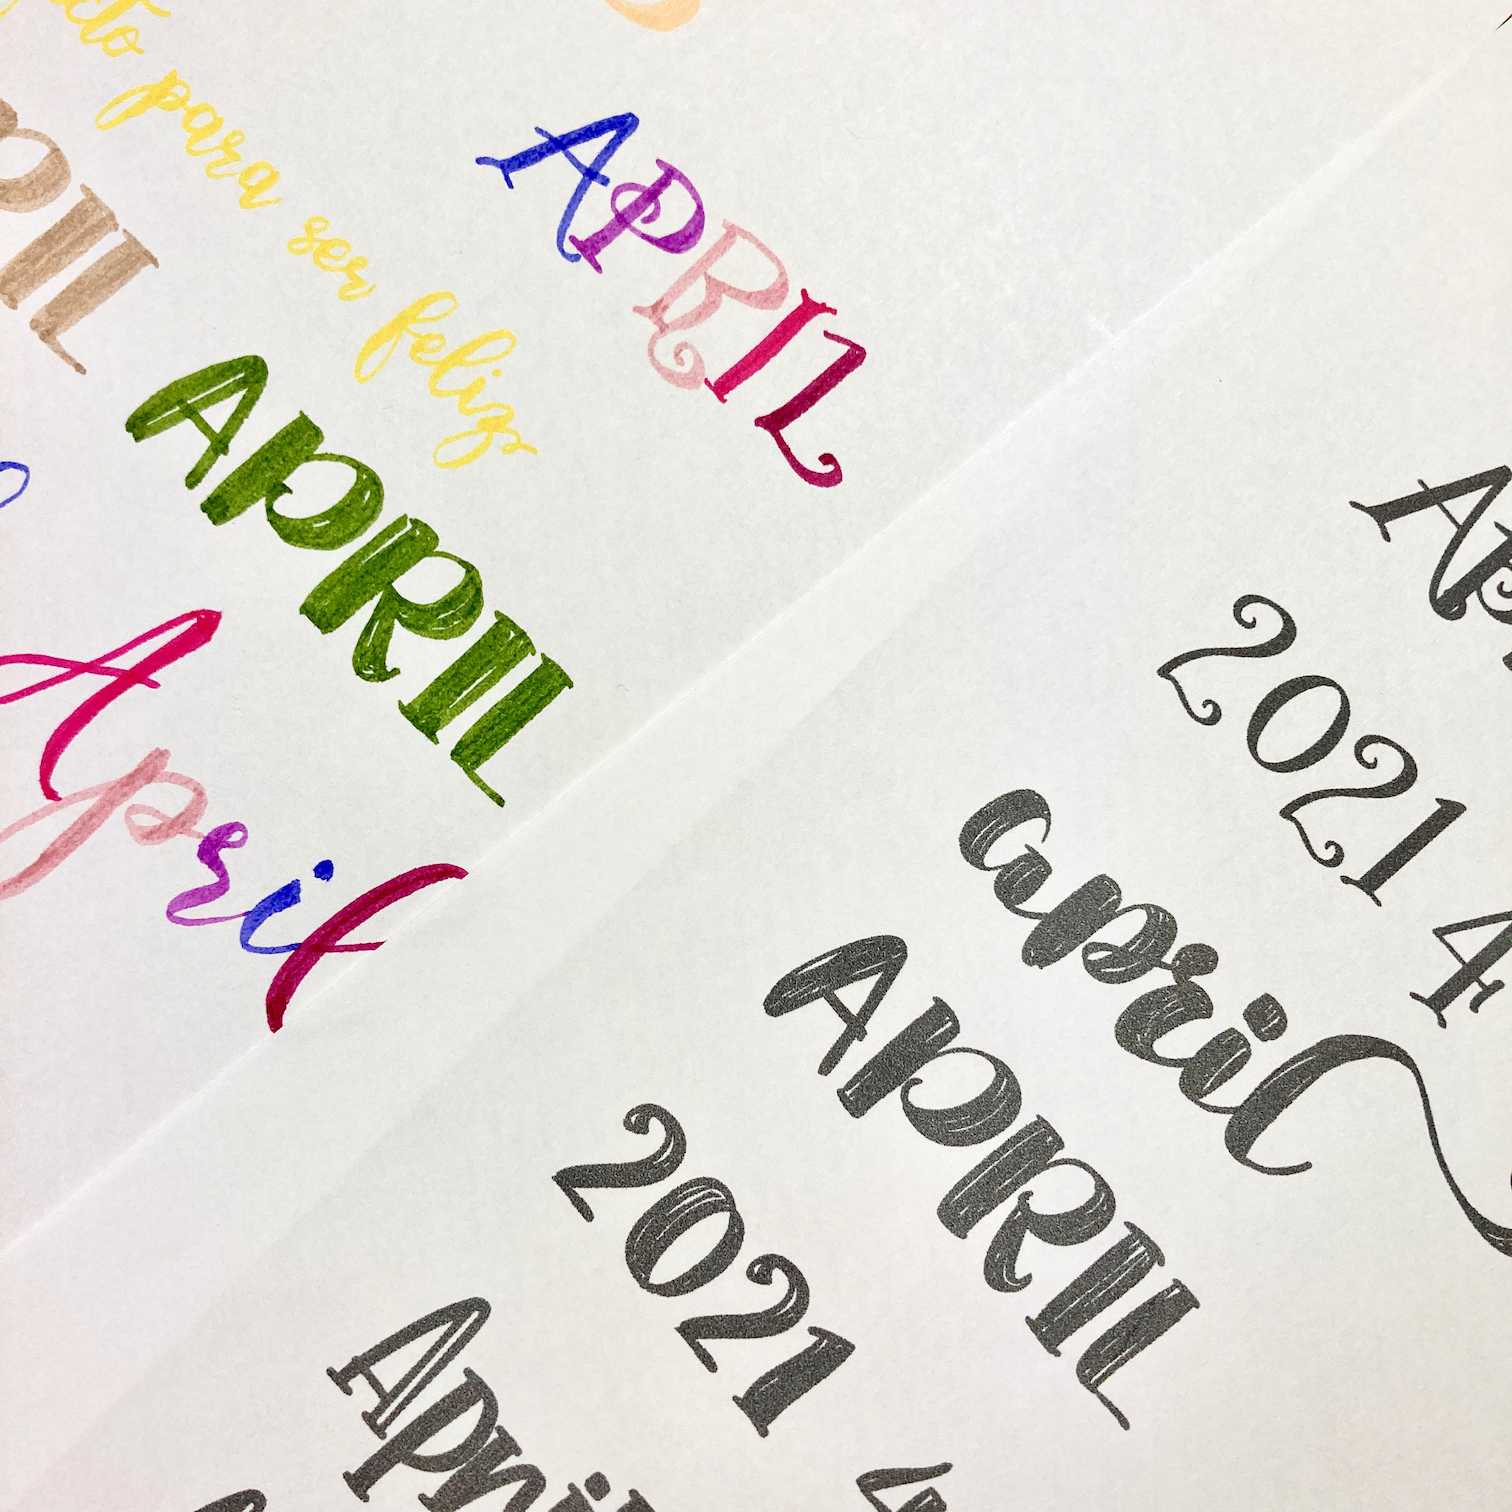 para ser feliz
APRIL
APRIL
April
2021
4
april
APRIL
2021
April